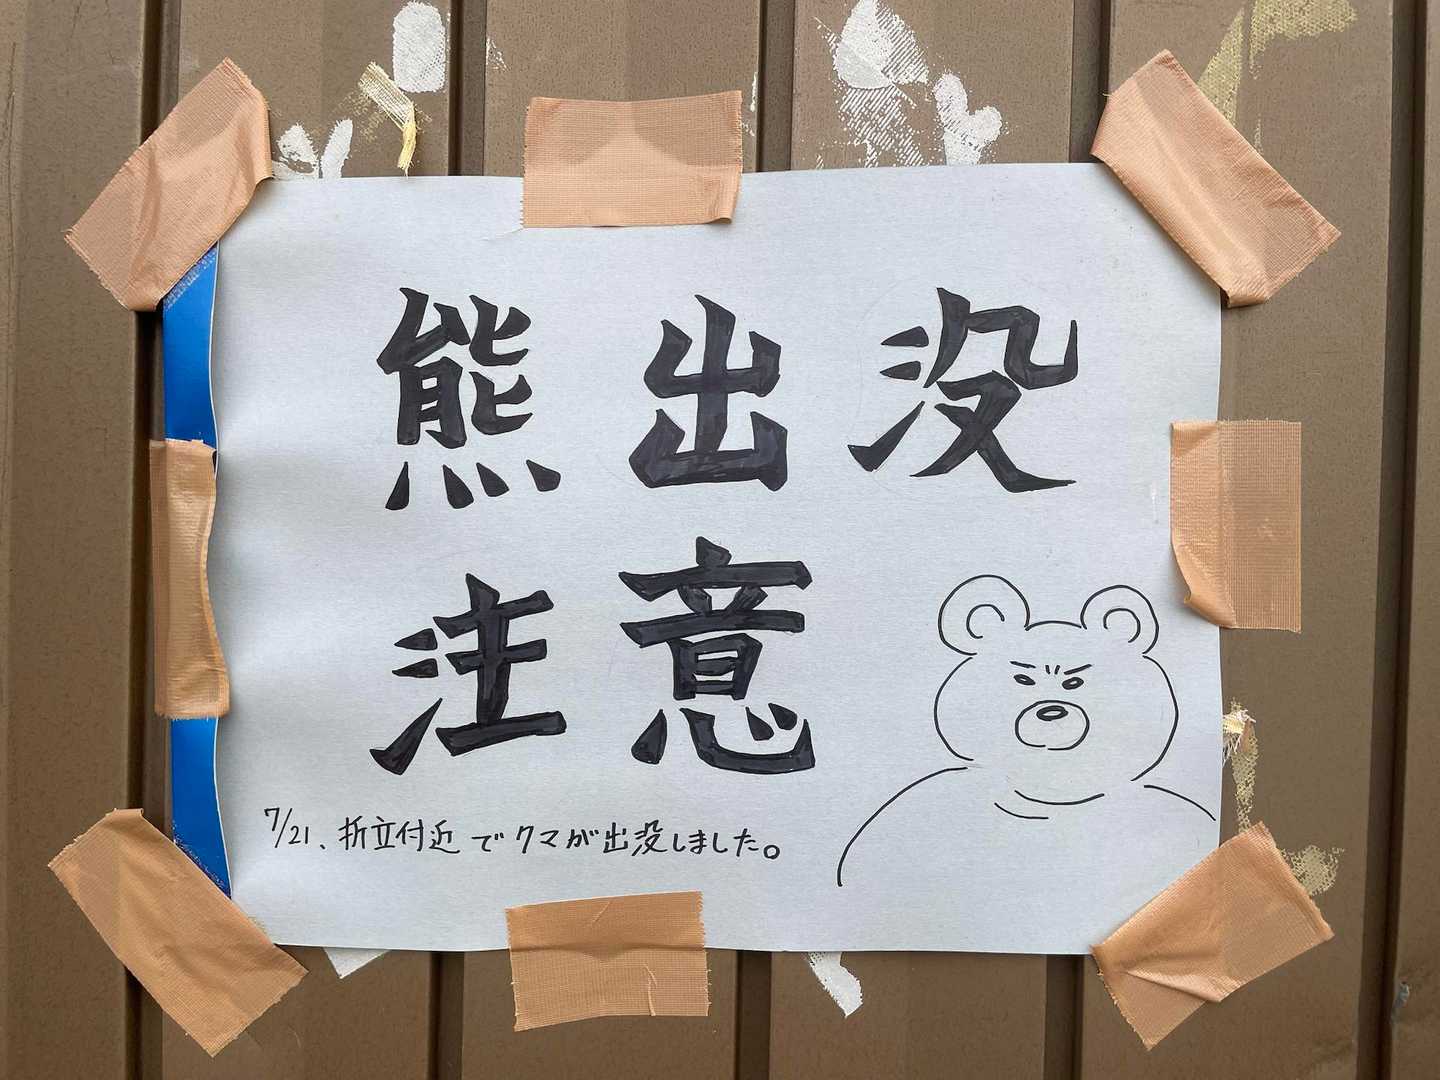 熊出没
注意
7/21、折立付近でクマが出没しました。